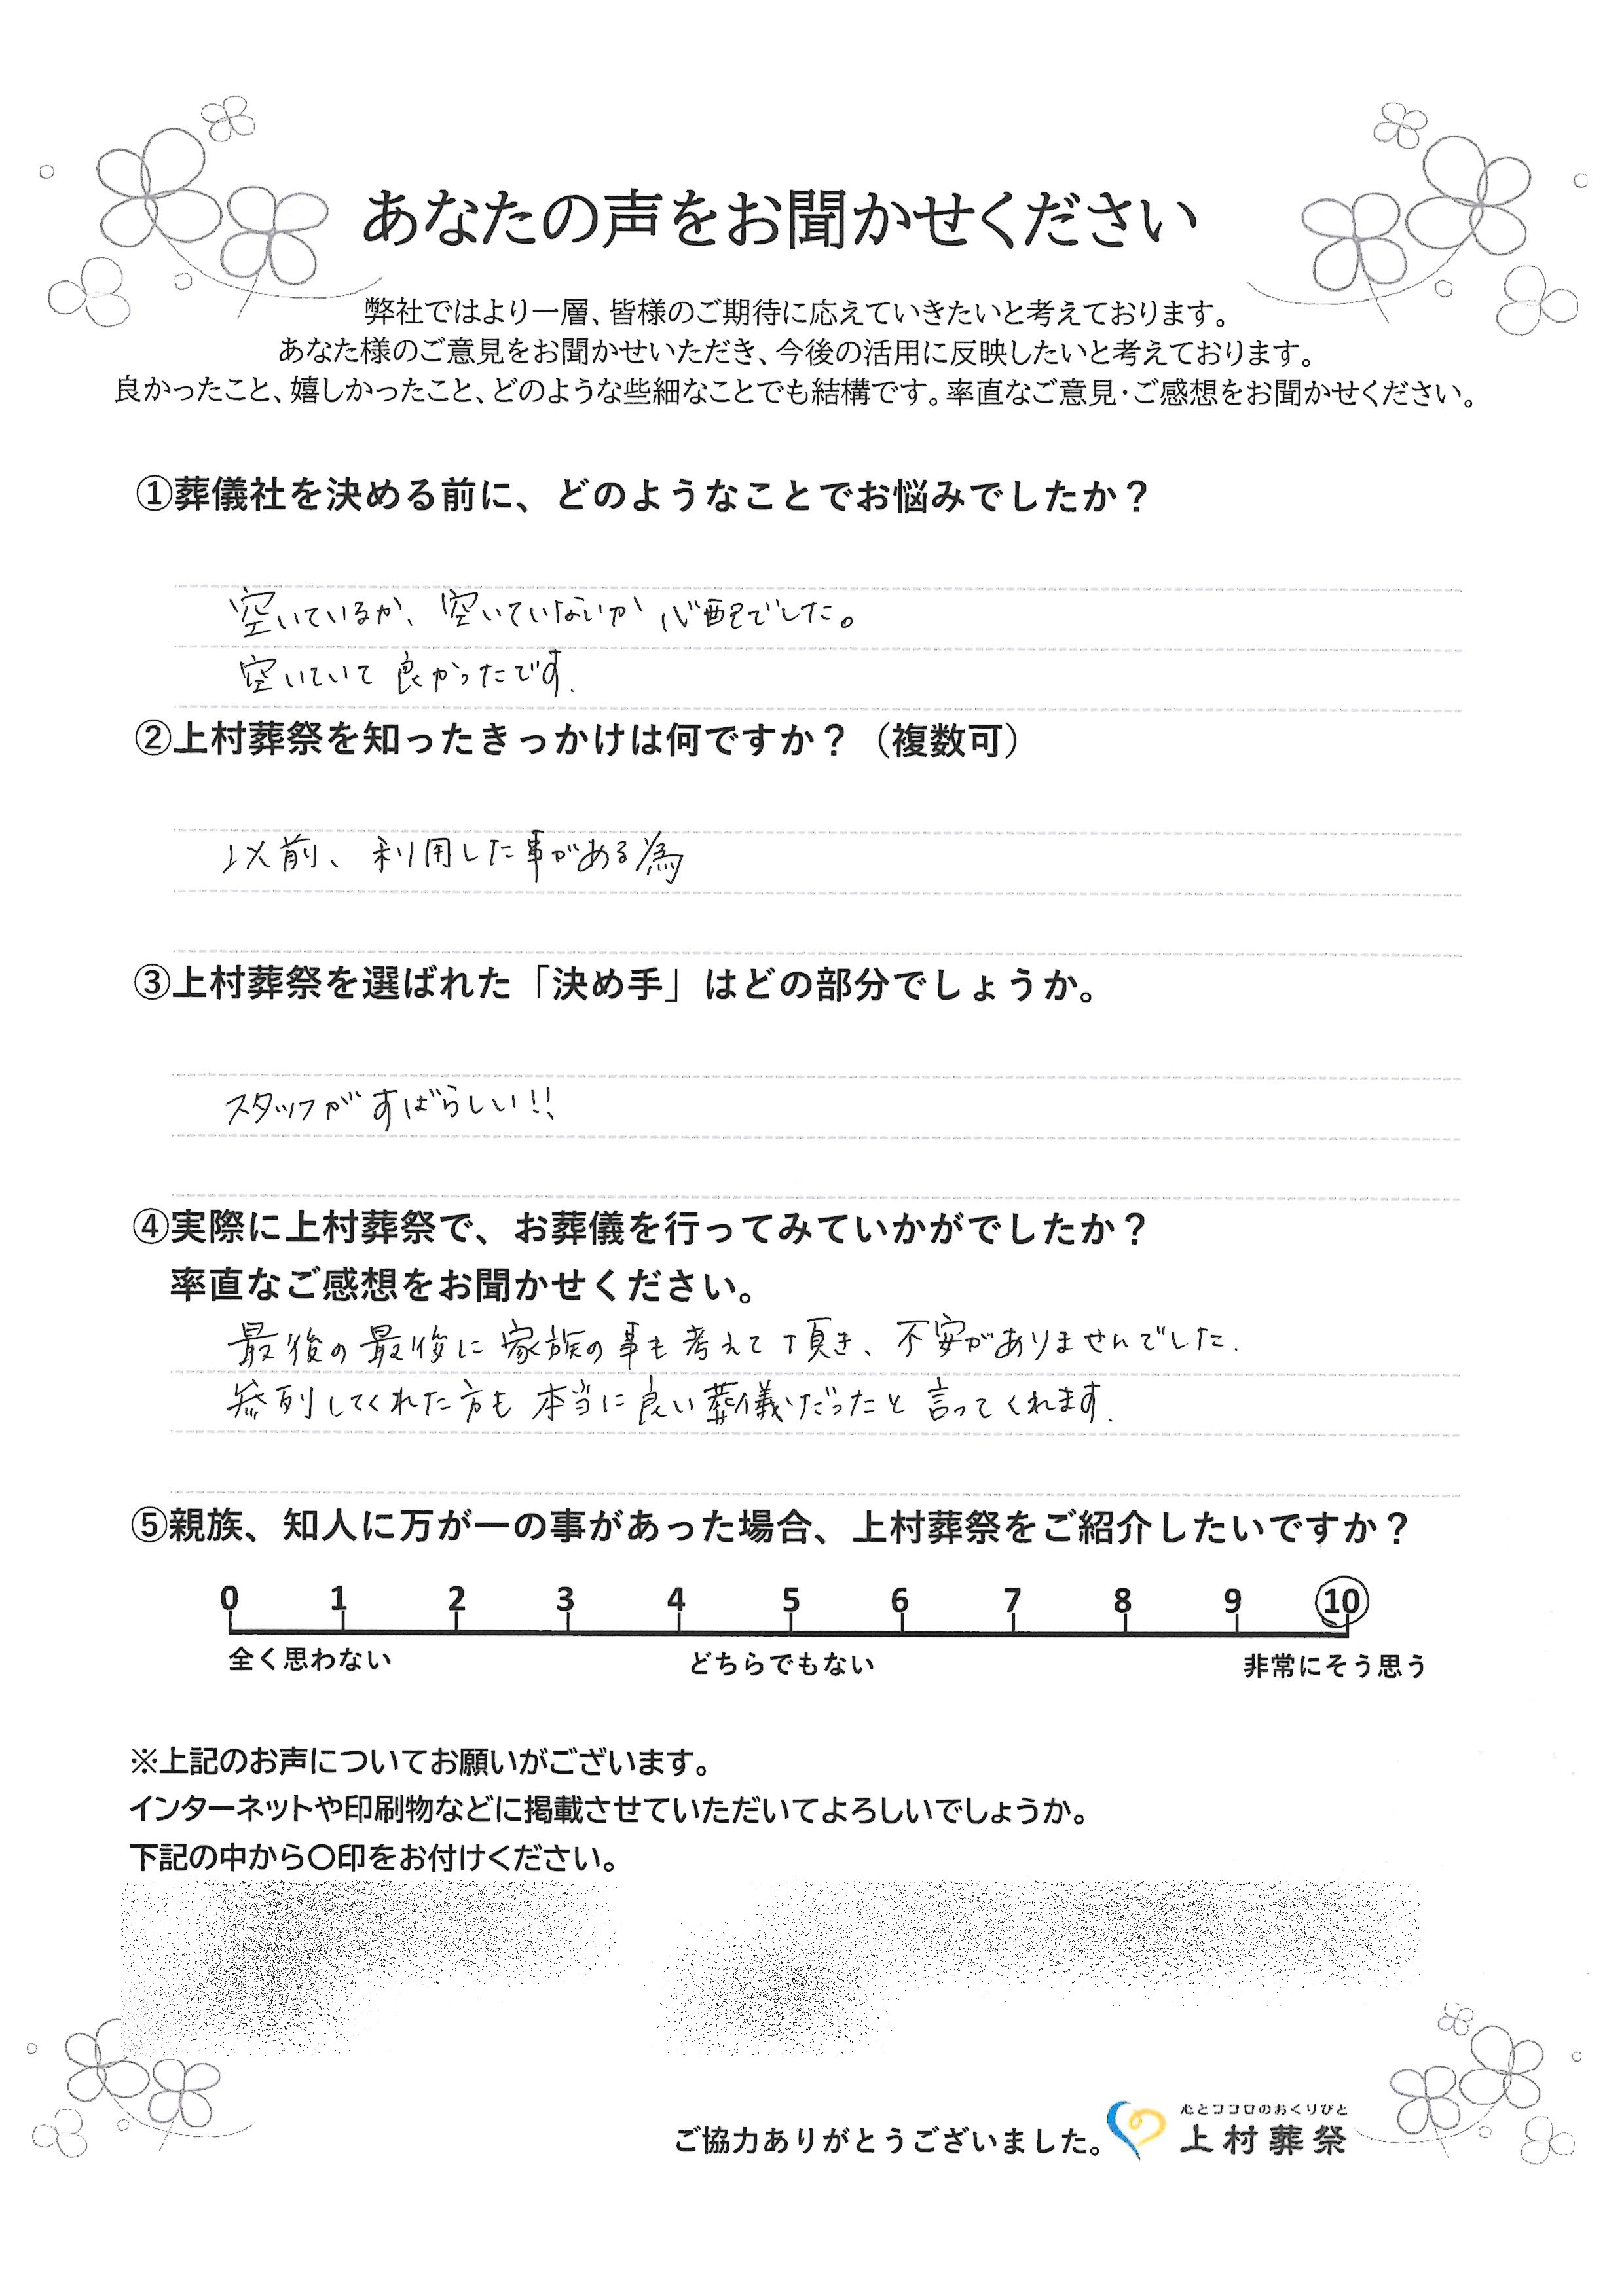 あなたの声をお聞かせください
弊社ではより一層、皆様のご期待に応えていきたいと考えております。
あなた様のご意見をお聞かせいただき、今後の活用に反映したいと考えております。
良かったこと、嬉しかったこと、どのような些細なことでも結構です。率直なご意見・ご感想をお聞かせください。
①葬儀社を決める前に、どのようなことでお悩みでしたか？
空いているか、空いていないか心配でした。
空いていて良かったです.
②上村葬祭を知ったきっかけは何ですか？（複数可）
以前、利用した事がある為
③上村葬祭を選ばれた「決め手」はどの部分でしょうか。
スタッフがすばらしい!!
④実際に上村葬祭で、お葬儀を行ってみていかがでしたか？
率直なご感想をお聞かせください。
最後の最後に家族の事も考えて頂き、不安がありませんでした.
参列してくれた方も本当に良い葬儀だったと言ってくれます.
⑤親族、知人に万が一の事があった場合、上村葬祭をご紹介したいですか？
0 1 2 3 4 5 6 7 8 9 10
全く思わない どちらでもない 非常にそう思う
※上記のお声についてお願いがございます。
インターネットや印刷物などに掲載させていただいてよろしいでしょうか。
下記の中から〇印をお付けください。
心とココロのおくりびと
ご協力ありがとうございました。 上村葬祭